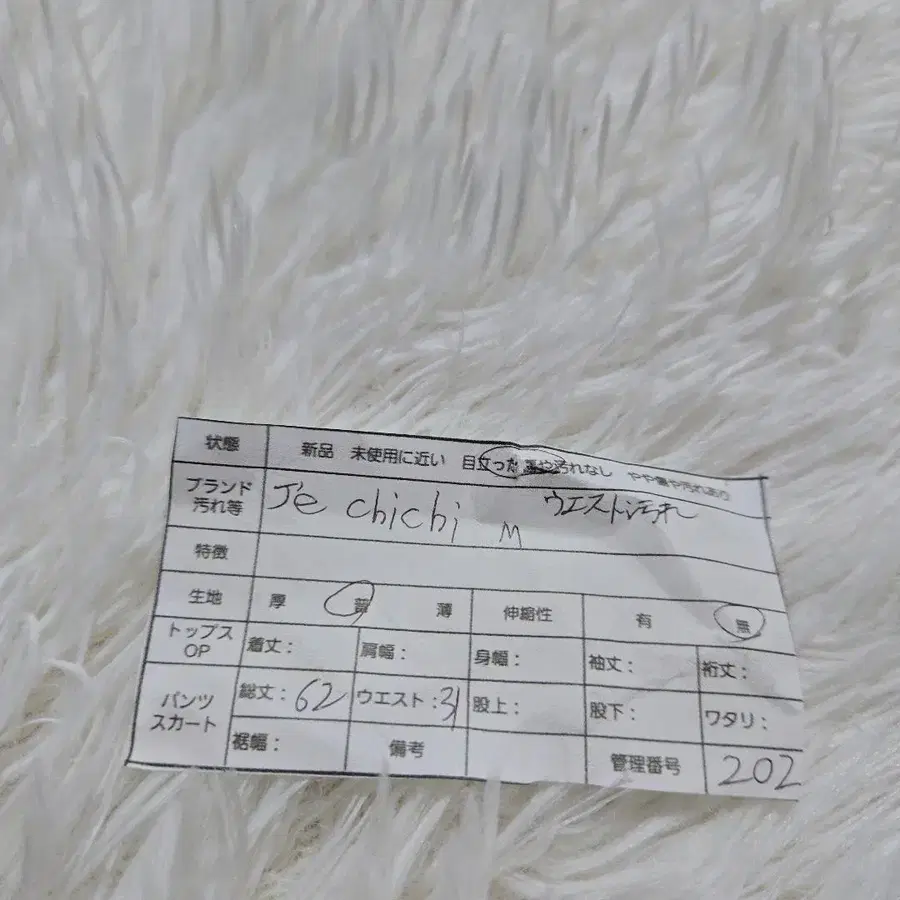 状態 新品 未使用に近い 目立った傷や汚れなし やや傷や汚れあり
ブランド 汚れ等 J'e chichi M ウエスト汚れ
特徴
生地 厚 普 薄 伸縮性 有 無
トップス OP 着丈: 肩幅: 身幅: 袖丈: 裄丈:
パンツ スカート 総丈:62 ウエスト:31 股上: 股下: ワタリ:
裾幅: 備考 管理番号 202